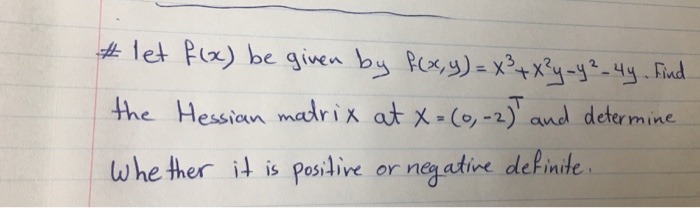 # let f(x) be given by f(x,y) = x³+x²y-y²-4y. Find
the Hessian matrix at X = (0,-2)ᵀ and determine
whether it is positive or negative definite.